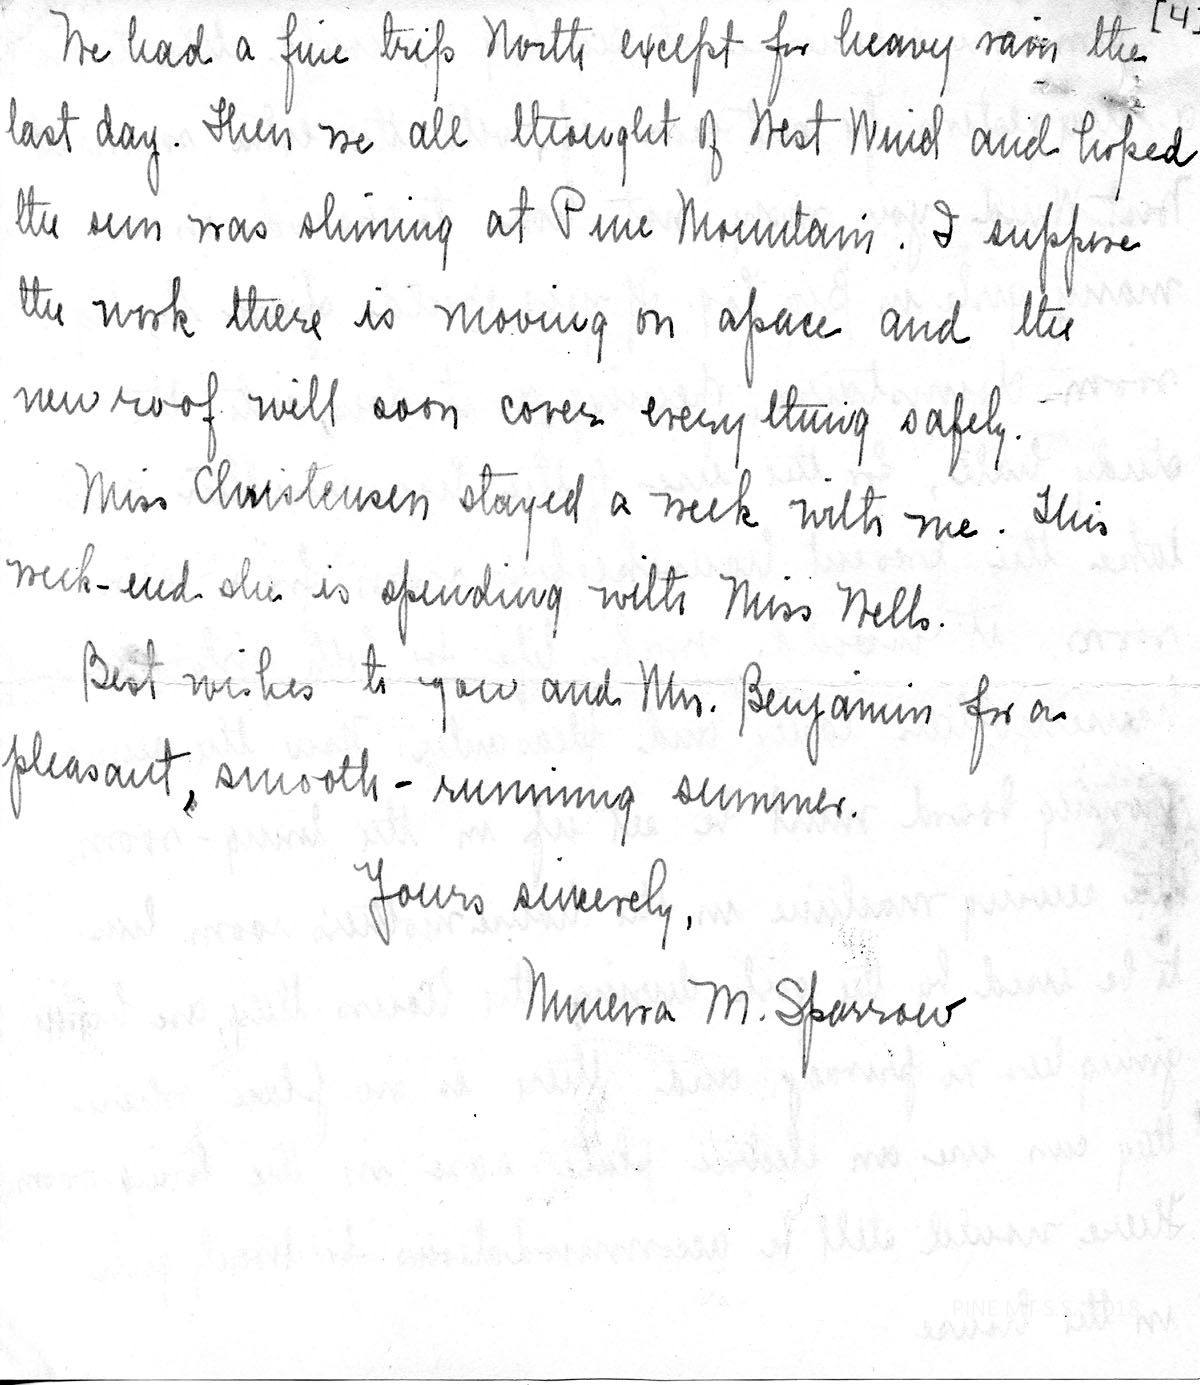 [4]
We had a fine trip North except for heavy rain the
last day. Then we all thought of West Wind and hoped
the sun was shining at Pine Mountain. I suppose
the work there is moving on apace and the
new roof will soon cover everything safely.
Miss Christensen stayed a week with me. This
week-end she is spending with Miss Wells.
Best wishes to you and Mrs. Benjamin for a
pleasant, smooth-running summer.
Yours sincerely,
Minerva M. Sparrow
PINE MT S S 2018